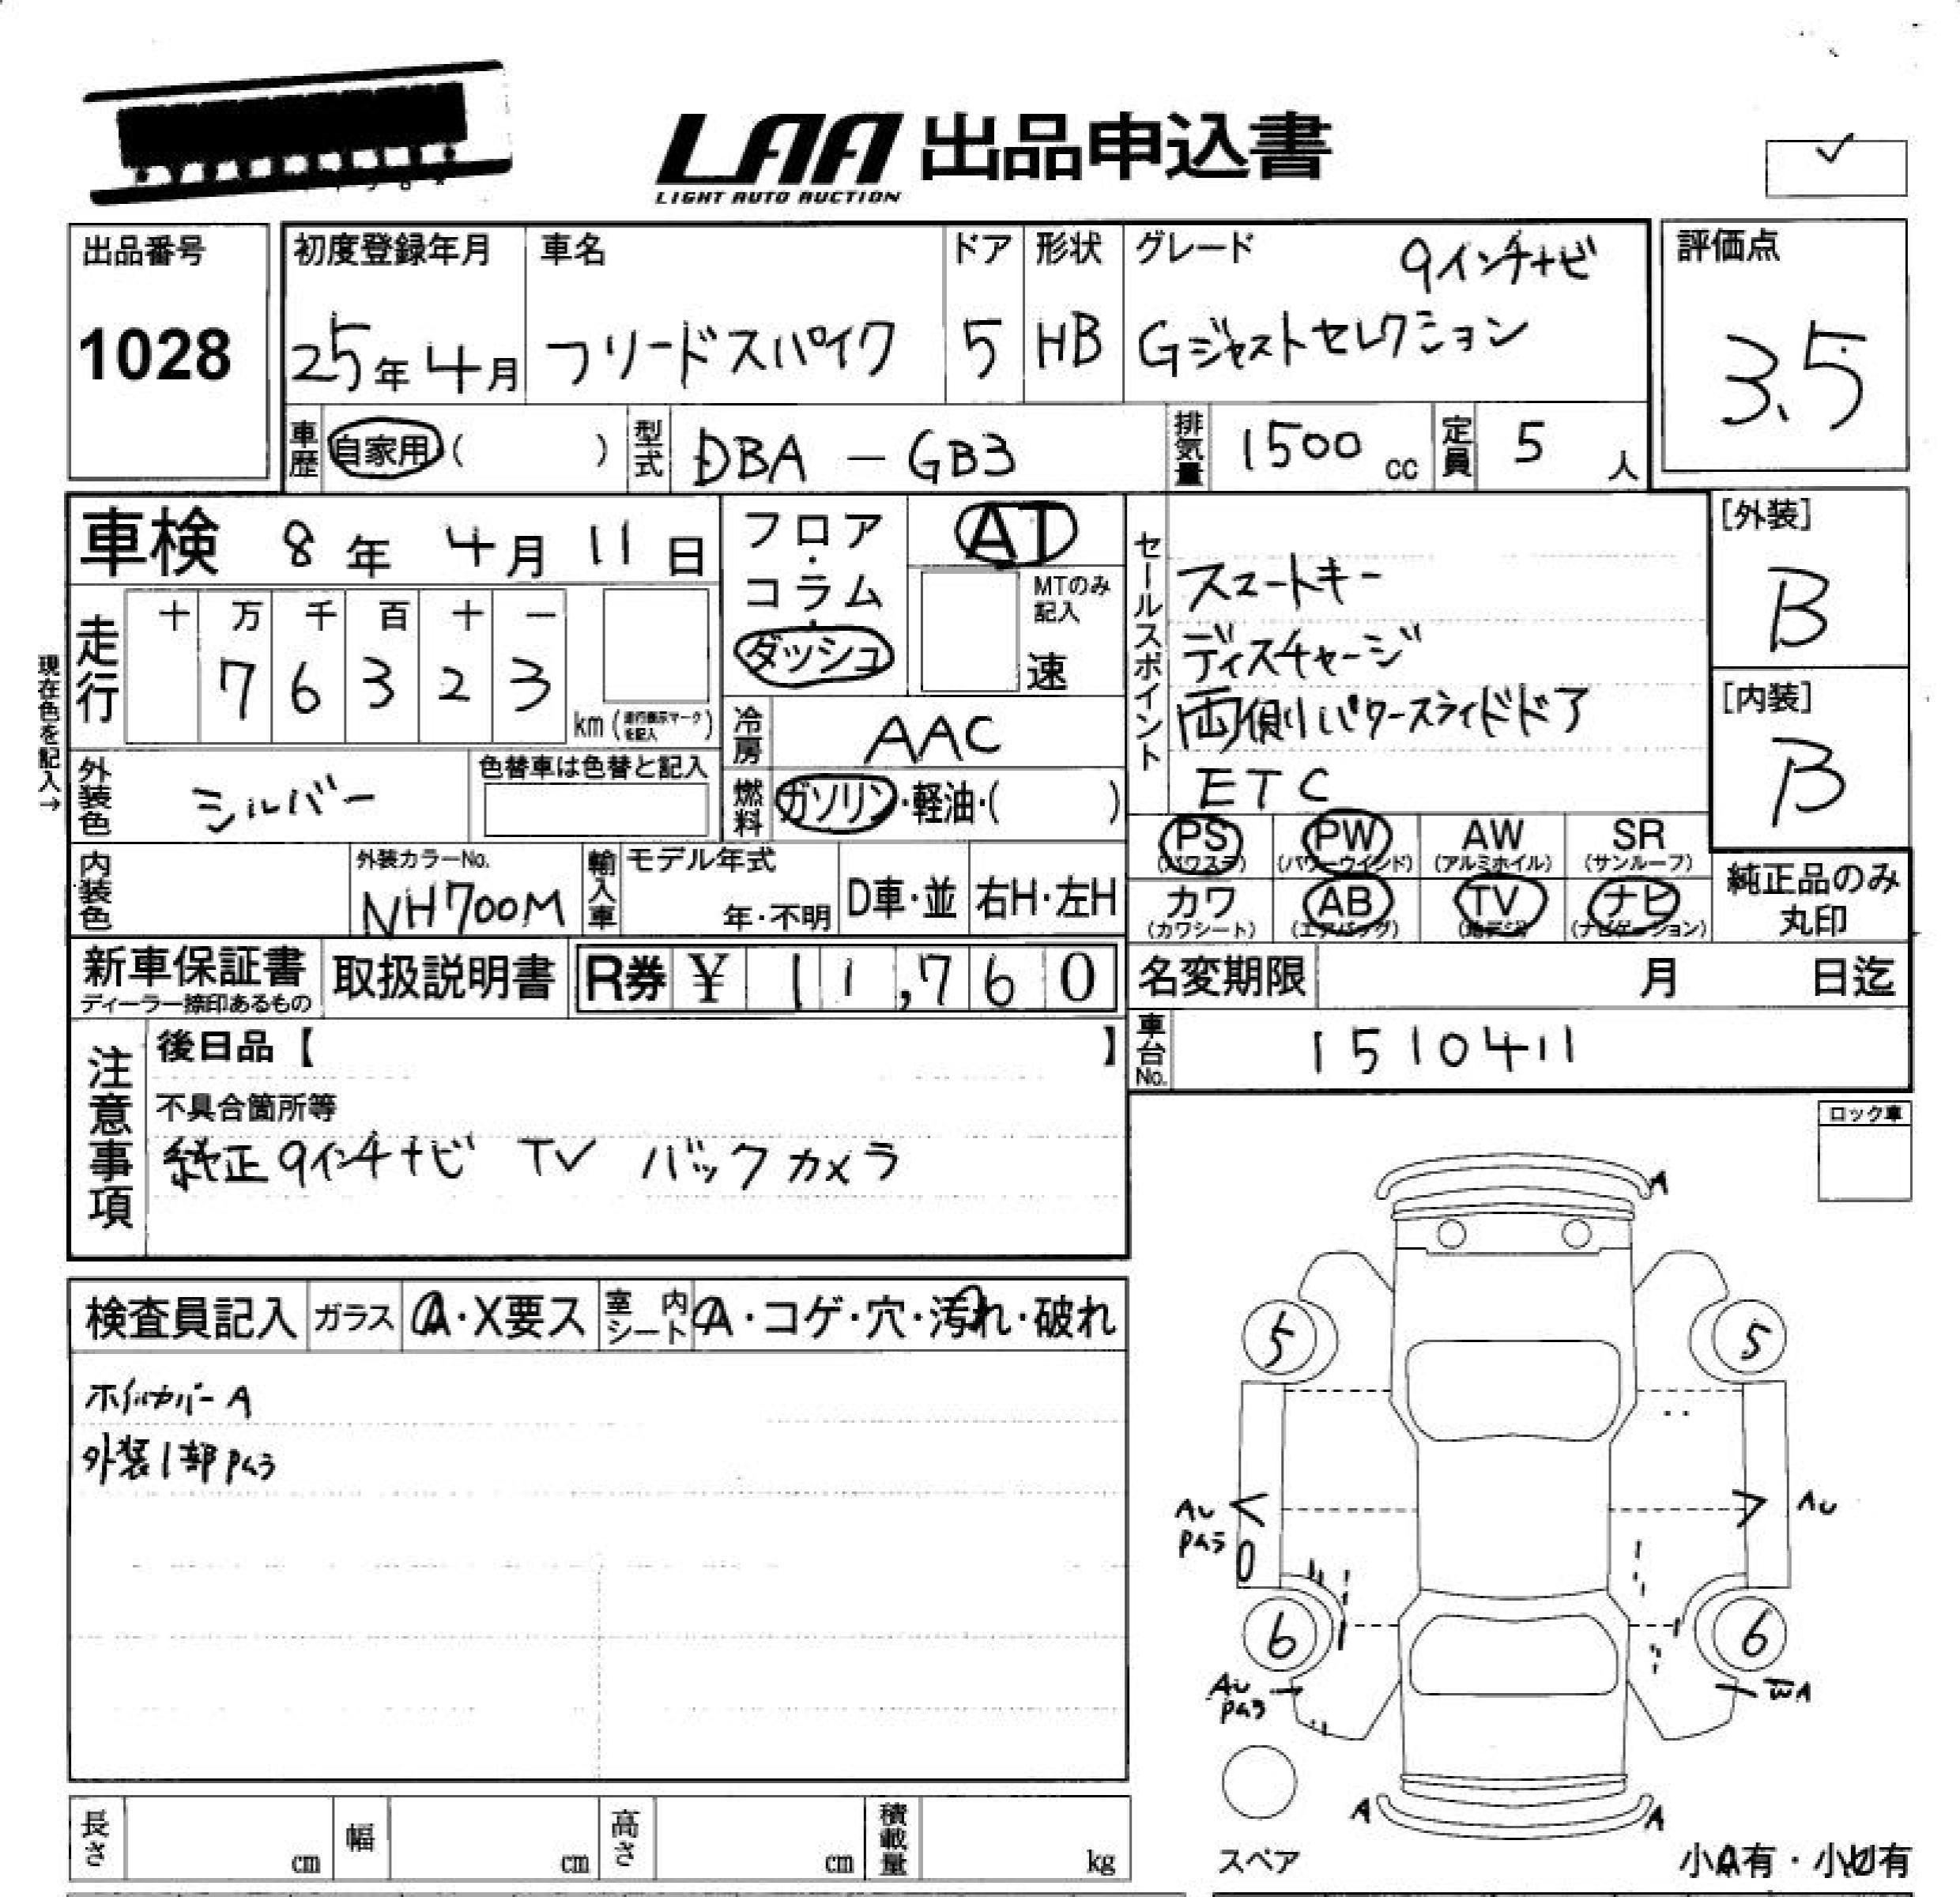 LAA 出品申込書
LIGHT AUTO AUCTION
出品番号
1028
初度登録年月
25年4月
車名
フリードスパイク
ドア
5
形状
HB
グレード
9インチナビ
Gジャストセレクション
評価点
3.5
車歴 自家用 ( )
型式 DBA - GB3
排気量 1500 cc
定員 5 人
車検 8年 4月 11日
現在色を記入→
走行
十 万 千 百 十 一
7 6 3 2 3
km (走行表示マークを記入)
フロア・コラム・ダッシュ
AT
MTのみ記入
速
冷房 AAC
燃料 ガソリン・軽油・( )
外装色 シルバー
色替車は色替と記入
内装色
外装カラーNo.
NH700M
輸入車
モデル年式
年・不明
D車・並
右H・左H
セールスポイント
スマートキー
ディスチャージ
両側パワースライドドア
ETC
[外装]
B
[内装]
B
PS (パワステ)
PW (パワーウインド)
AW (アルミホイル)
SR (サンルーフ)
カワ (カワシート)
AB (エアバッグ)
TV (地デジ)
ナビ (ナビゲーション)
純正品のみ
丸印
新車保証書
ディーラー捺印あるもの
取扱説明書
R券 ¥ 11,760
名変期限 月 日迄
車台No. 1510411
注意事項
後日品【 】
不具合箇所等
純正9インチナビ TV バックカメラ
ロック車
検査員記入
ガラス A・X要ス
室内シート A・コゲ・穴・汚れ・破れ
ホイルカバーA
外装1部Pむラ
A
5 5
AU AU
6 6
AU
WA
A A
スペア
小A有・小U有
長さ cm
幅 cm
高さ cm
積載量 kg